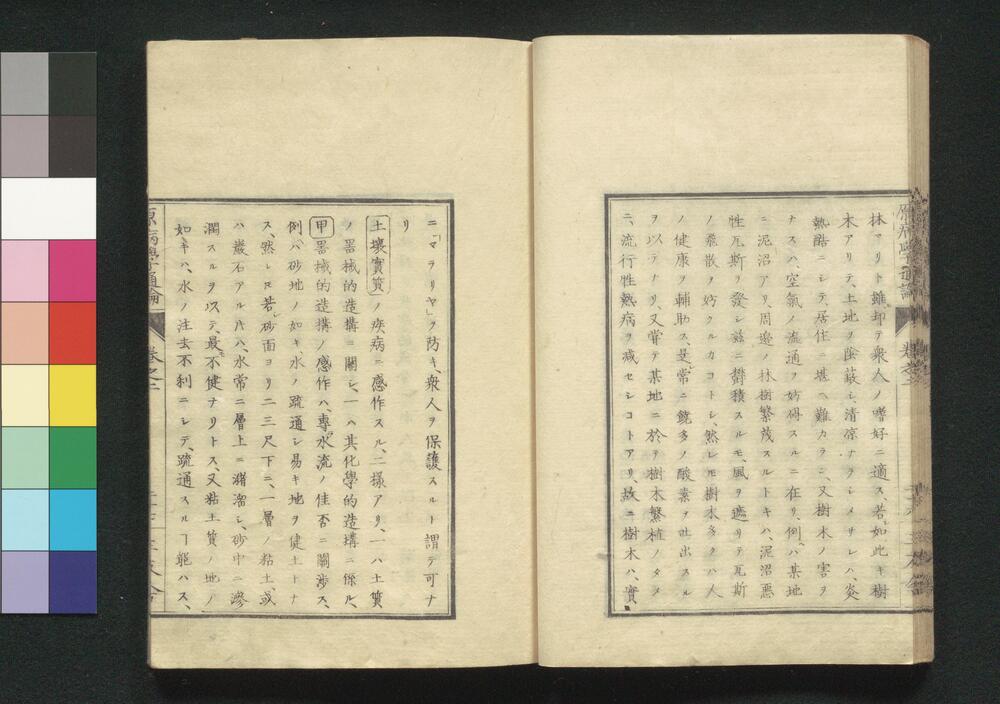 林マリト雖却テ衆人ノ嗜好ニ適ス、若シ如此キ樹
木アリテ、土地ヲ蔭蔽シ、清凉ナラシメサレハ、炎
熱酷ニシテ、居住ニ堪ヘ難カラン、又樹木ノ害ヲ
ナスハ、空氣ノ流通ヲ妨碍スルニ在リ、例ヘハ某地
ニ泥沼アリ、周邊ノ林樹繁茂スルトキハ、泥沼悪
性瓦斯ヲ發シ玆ニ欝積スルモ、風ヲ遮リテ瓦斯
ノ飛散ヲ妨クルカコトシ、然レモ樹木多クハ人
ノ健康ヲ輔助ス、是常ニ饒多ノ酸素ヲ吐出スル
ヲ以テナリ、又甞テ某地ニ於テ樹木繁植ノタメ
ニ、流行性熱病ヲ減セシコトアリ、故ニ樹木ハ、實
ニ「マラリヤ」ヲ防キ、衆人ヲ保護スルト謂テ可ナ
リ
土壤實質ノ疾病ニ感作スル、二樣アリ、一ハ土質
ノ器械的造搆ニ關シ、一ハ其化學的造搆ニ係ル、
甲器械的造搆ノ感作ハ、專ラ水流ノ佳否ニ關渉ス、
例ヘハ砂地ノ如キ、水ノ疏通シ易キ地ヲ健土トナ
ス、然レ𪜈若シ砂面ヨリ二三尺下ニ、一層ノ粘土、或
ハ巖石アル𪜈ハ、水常ニ層上ニ瀦溜シ、砂中ニ滲
潤スルヲ以テ、最モ不健ナリトス、又粘土質ノ地ノ
如キハ、水ノ注去不利ニシテ、疏通スルヿ能ハス、
原病學通論
卷之二